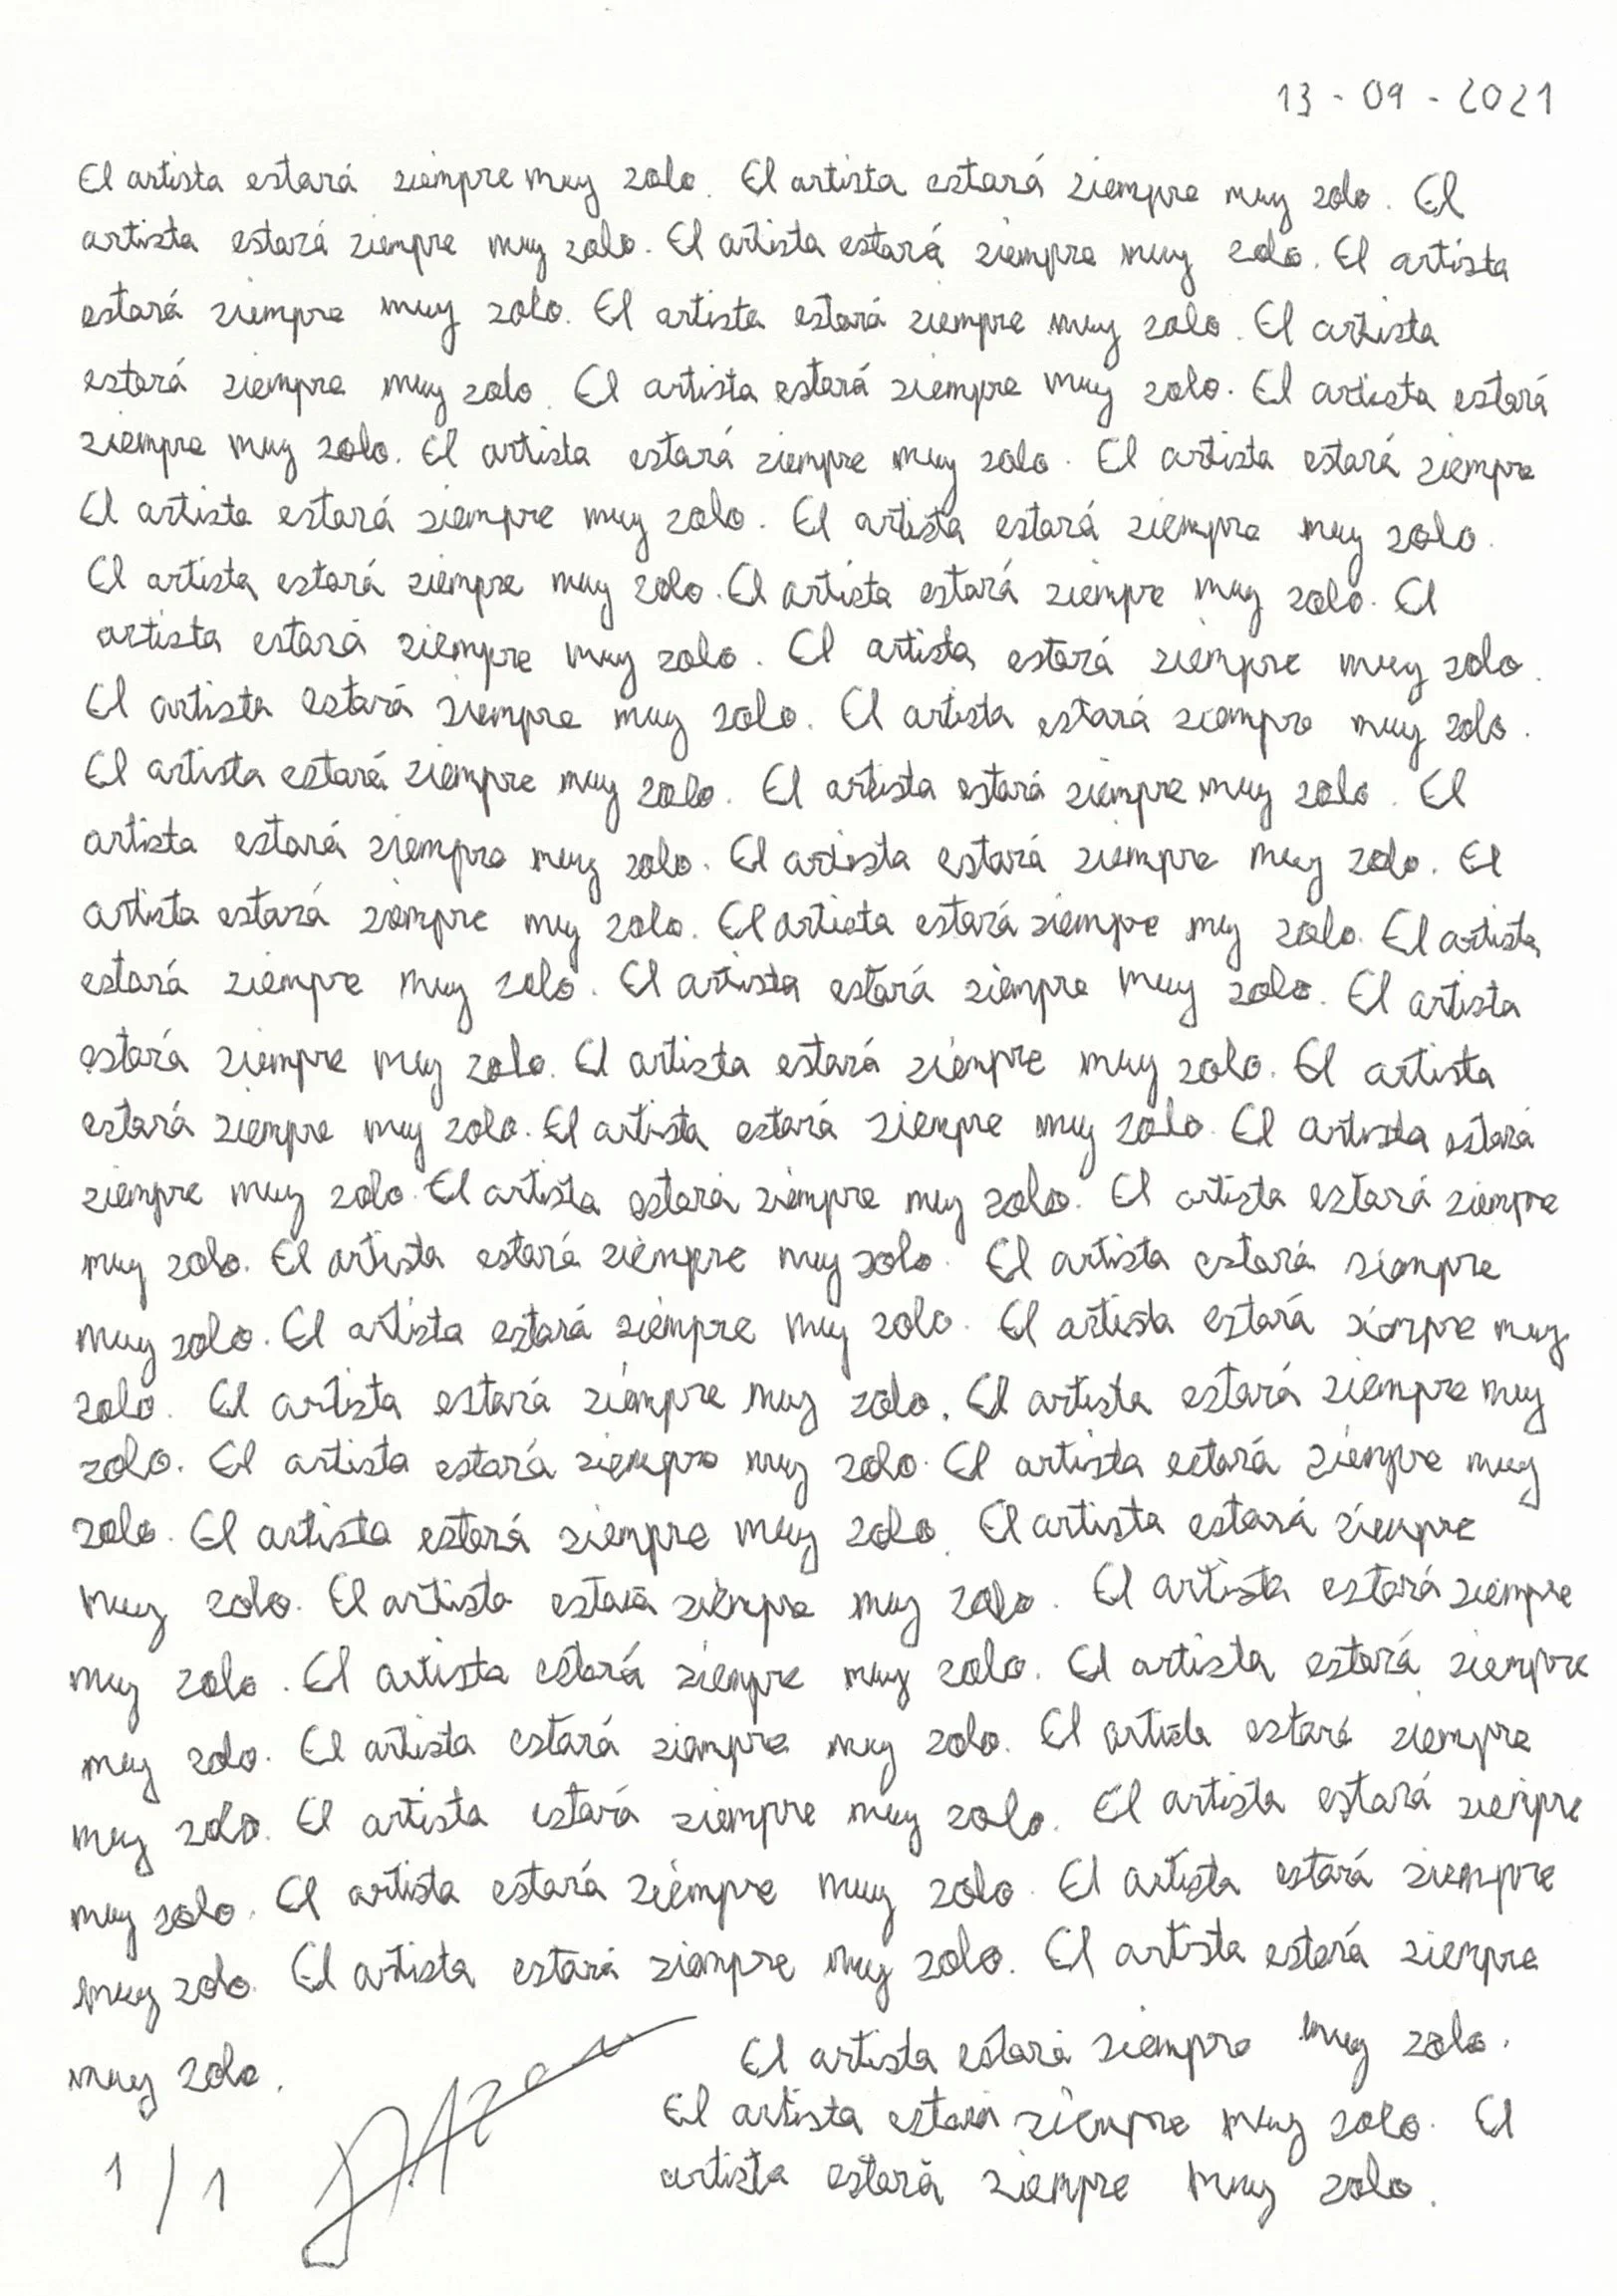 13 - 09 - 2021
El artista estará siempre muy solo. El artista estará siempre muy solo. El
artista estará siempre muy solo. El artista estará siempre muy solo. El artista
estará siempre muy solo. El artista estará siempre muy solo. El artista
estará siempre muy solo. El artista estará siempre muy solo. El artista estará
siempre muy solo. El artista estará siempre muy solo. El artista estará siempre
El artista estará siempre muy solo. El artista estará siempre muy solo.
El artista estará siempre muy solo. El artista estará siempre muy solo. El
artista estará siempre muy solo. El artista estará siempre muy solo.
El artista estará siempre muy solo. El artista estará siempre muy solo.
El artista estará siempre muy solo. El artista estará siempre muy solo. El
artista estará siempre muy solo. El artista estará siempre muy solo. El
artista estará siempre muy solo. El artista estará siempre muy solo. El artista
estará siempre muy solo. El artista estará siempre muy solo. El artista
estará siempre muy solo. El artista estará siempre muy solo. El artista
estará siempre muy solo. El artista estará siempre muy solo. El artista estará
siempre muy solo. El artista estará siempre muy solo. El artista estará siempre
muy solo. El artista estará siempre muy solo. El artista estará siempre
muy solo. El artista estará siempre muy solo. El artista estará siempre muy
solo. El artista estará siempre muy solo. El artista estará siempre muy
solo. El artista estará siempre muy solo. El artista estará siempre muy
solo. El artista estará siempre muy solo. El artista estará siempre
muy solo. El artista estará siempre muy solo. El artista estará siempre
muy solo. El artista estará siempre muy solo. El artista estará siempre
muy solo. El artista estará siempre muy solo. El artista estará siempre
muy solo. El artista estará siempre muy solo. El artista estará siempre
muy solo. El artista estará siempre muy solo. El artista estará siempre
muy solo. El artista estará siempre muy solo. El artista estará siempre
muy solo.
El artista estará siempre muy solo.
El artista estará siempre muy solo. El
artista estará siempre muy solo.
1/1